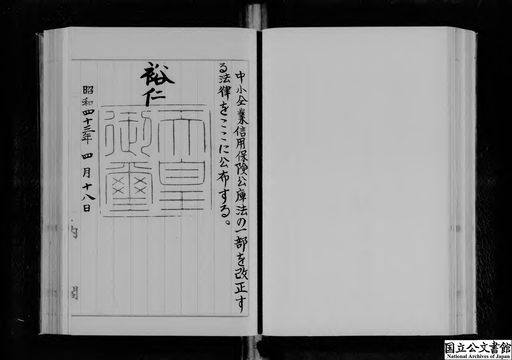 中小企業信用保険公庫法の一部を改正す
る法律をここに公布する。
裕仁
天皇
御璽
昭和四十三年四月十八日
内閣
国立公文書館
National Archives of Japan